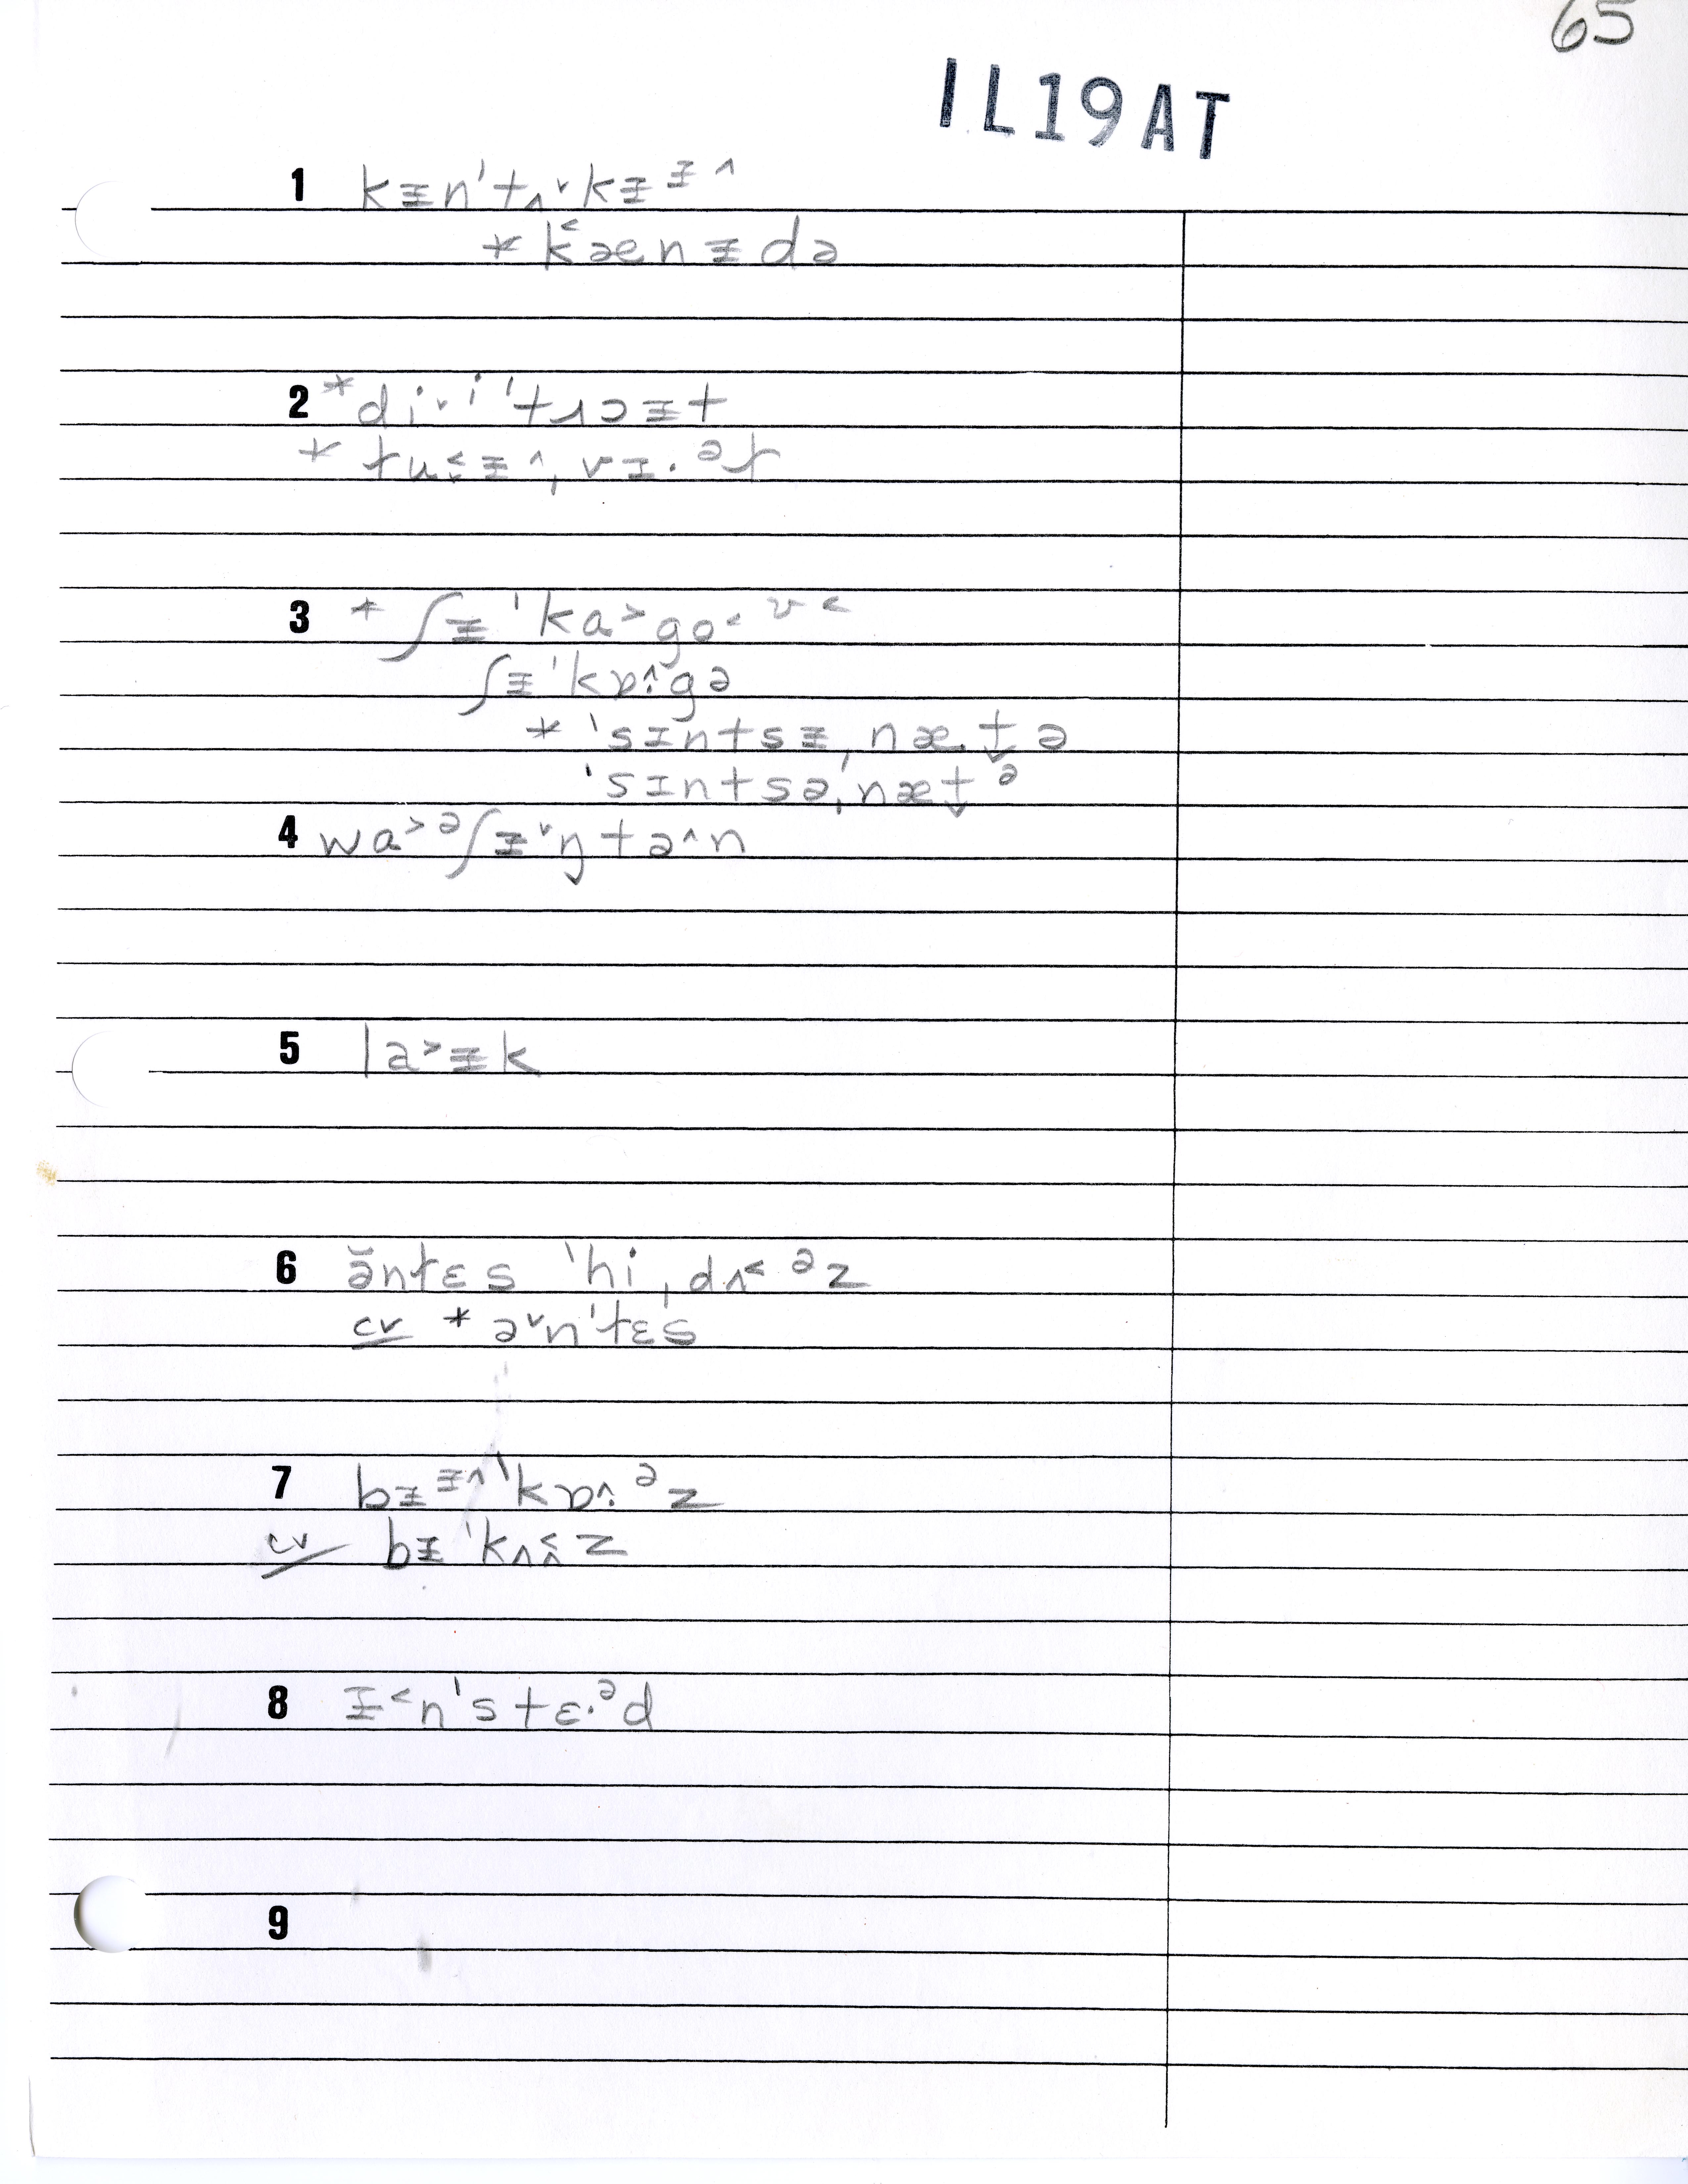 65
IL19AT
1 kᵻn'tʌ˅kᵻ ᵻ^
* k˂æenᵻdə
2 *di˅ⁱ'tɹɔᵻt
* tu˂ᵻ^ˌvɪ.ᵊt
3 * ʃᵻ'ka˃go˂ ʊ˂
ʃᵻ'kɒ^.gə
* 'sɪntsᵻˌnæṱə
'sɪntsəˌnæṱᵊ
4 wa˃ᵊʃᵻ˅ŋtə^n
5 la˃ᵻk
6 ə̆ntɛs 'hiˌdʌ˂ᵊz
cv * ə˅n'tɛs
7 bᵻᵻ^'kɒ^.ᵊz
cv bᵻ'kʌ˂^z
8 ɪ˂n'stɛ.ᵊd
9